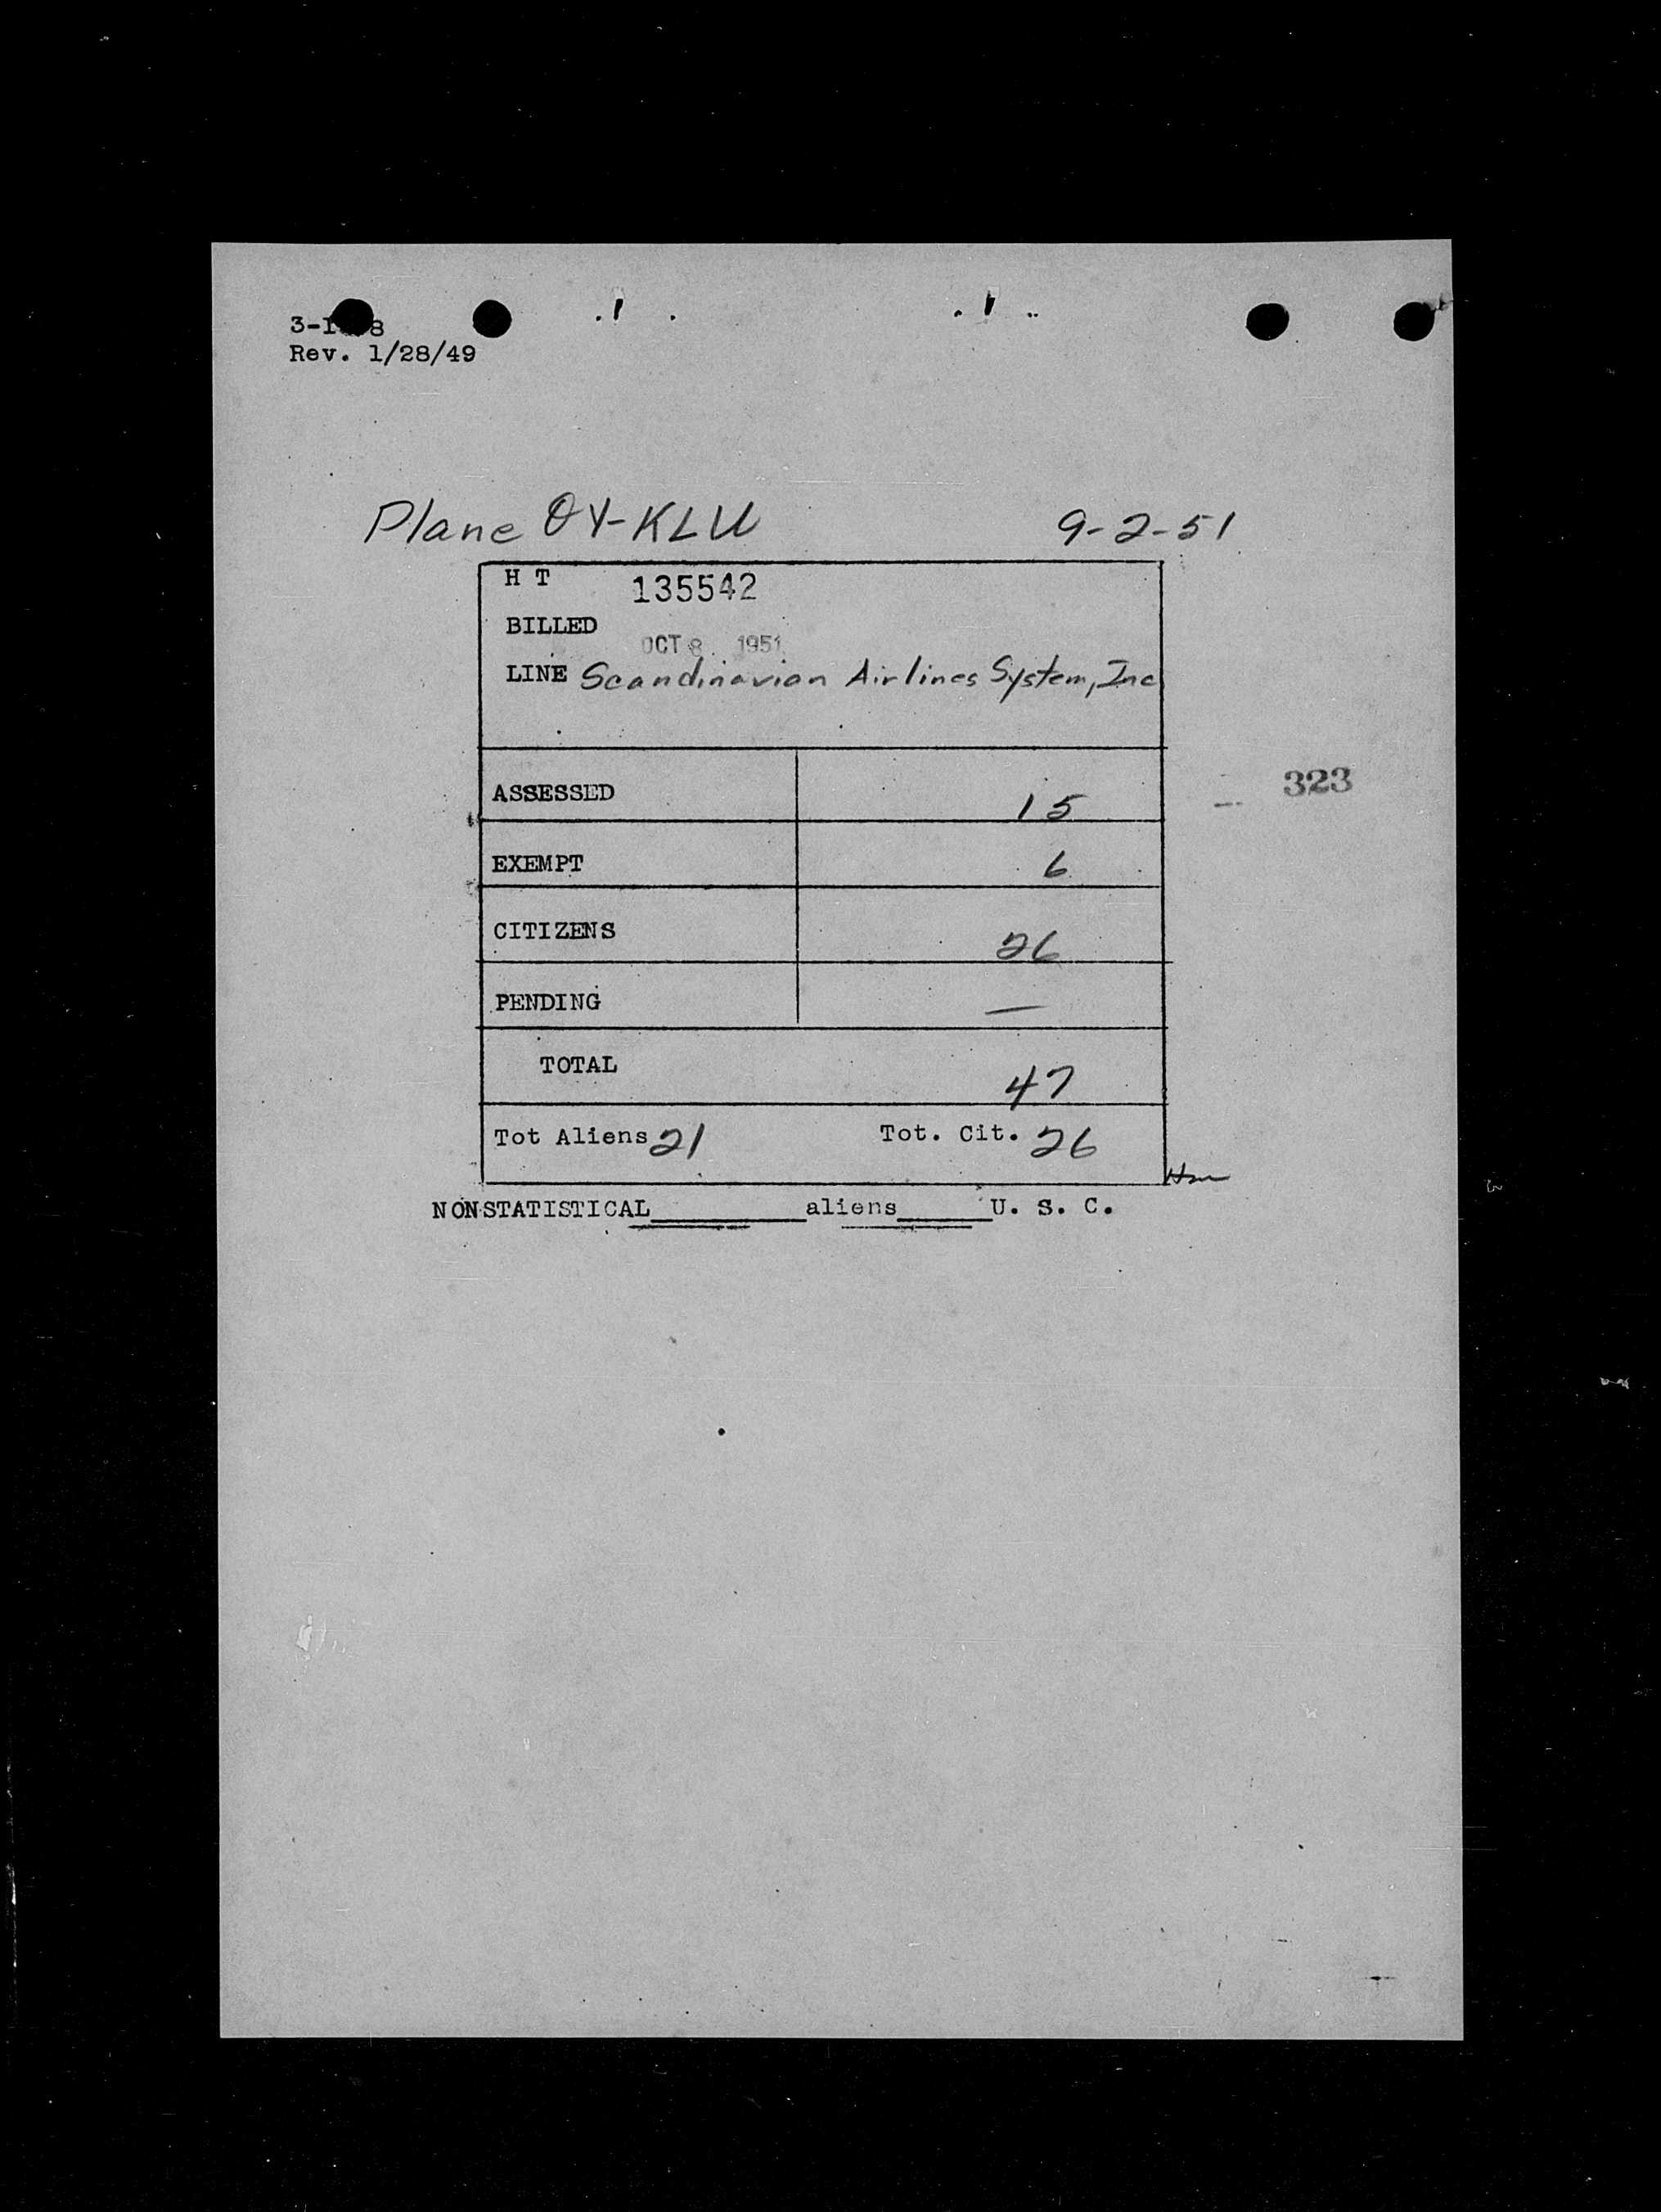 Rev. 1/28/49
Plane OY-KLU 9-2-51
H T 135542
BILLED
OCT 8 1951
LINE Scandinavian Airlines System, Inc
323
ASSESSED 15
EXEMPT 6
CITIZENS 26
PENDING —
TOTAL 47
Tot Aliens 21 Tot. Cit. 26
NONSTATISTICAL________aliens_____U. S. C.